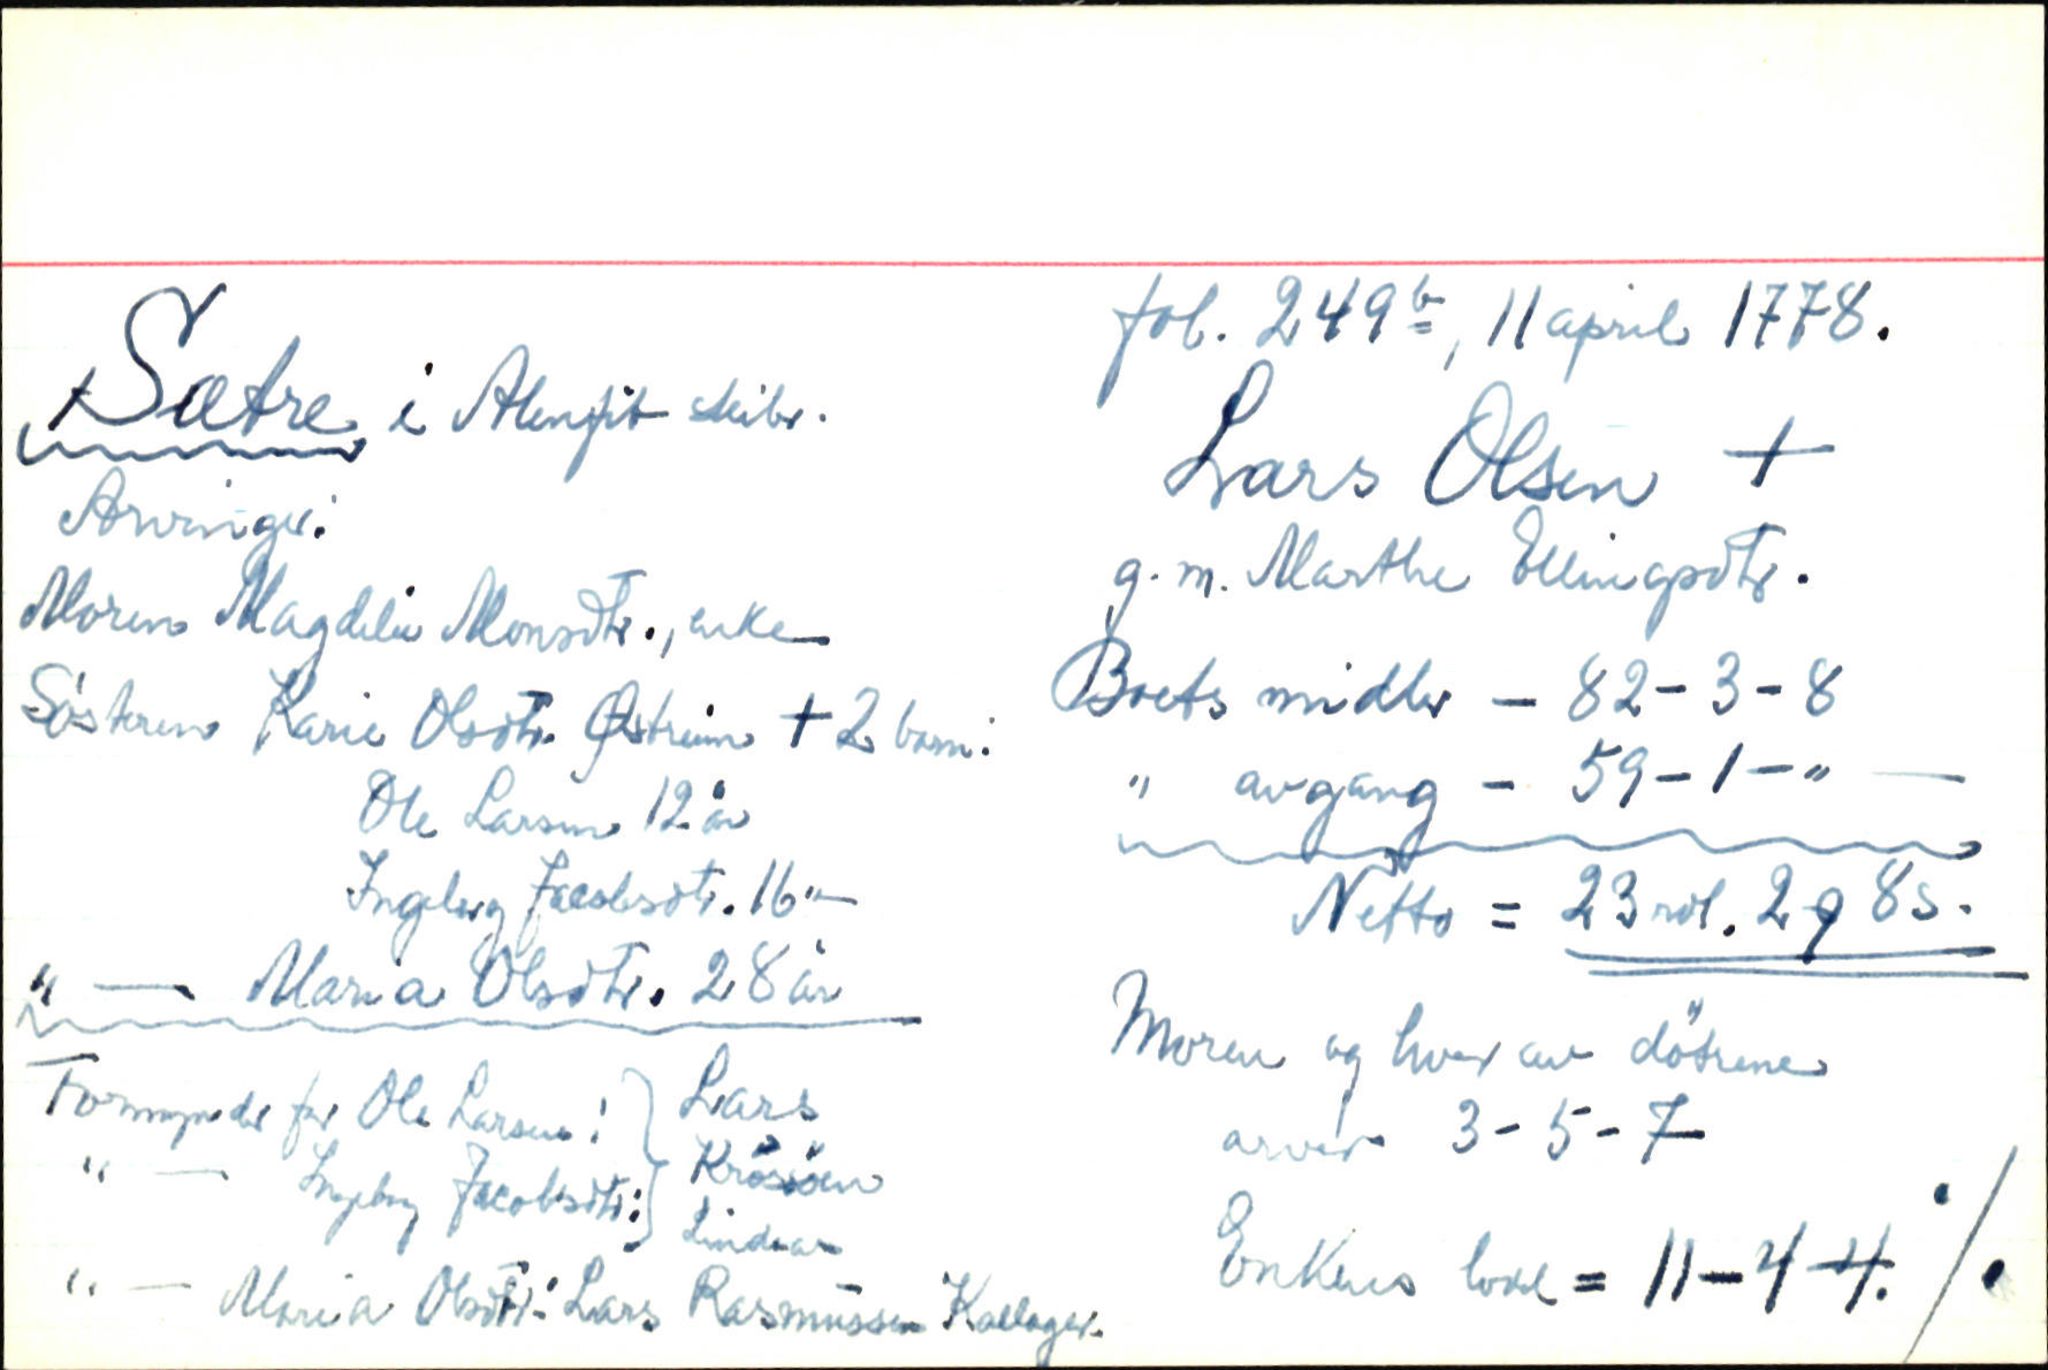 fol. 249b, 11 april 1778.
Sætre i Alenfit skibr.
Lars Olsen +
g. m. Marthe Ellingsdtr.
Arvinger:
Moren Magdeli Monsdtr., enke
Søsteren Karie Olsdtr. Østreim + 2 barn:
Ole Larsen 12 år
Ingeborg Jacobsdtr. 16 "—
" — Maria Olsdtr. 28 år
Formynder for Ole Larsen:
" — Ingeborg Jacobsdtr:
Lars
Krossöen
Lindaas
" — Maria Olsdtr: Lars Rasmussen Kallager.
Boets midler — 82-3-8
" avgang — 59-1-" —
Netto = 23 rdl. 2 q 8 s.
Moren og hver av döttrene
arver 3-5-7
Enkens lodd = 11-4-4. ./.